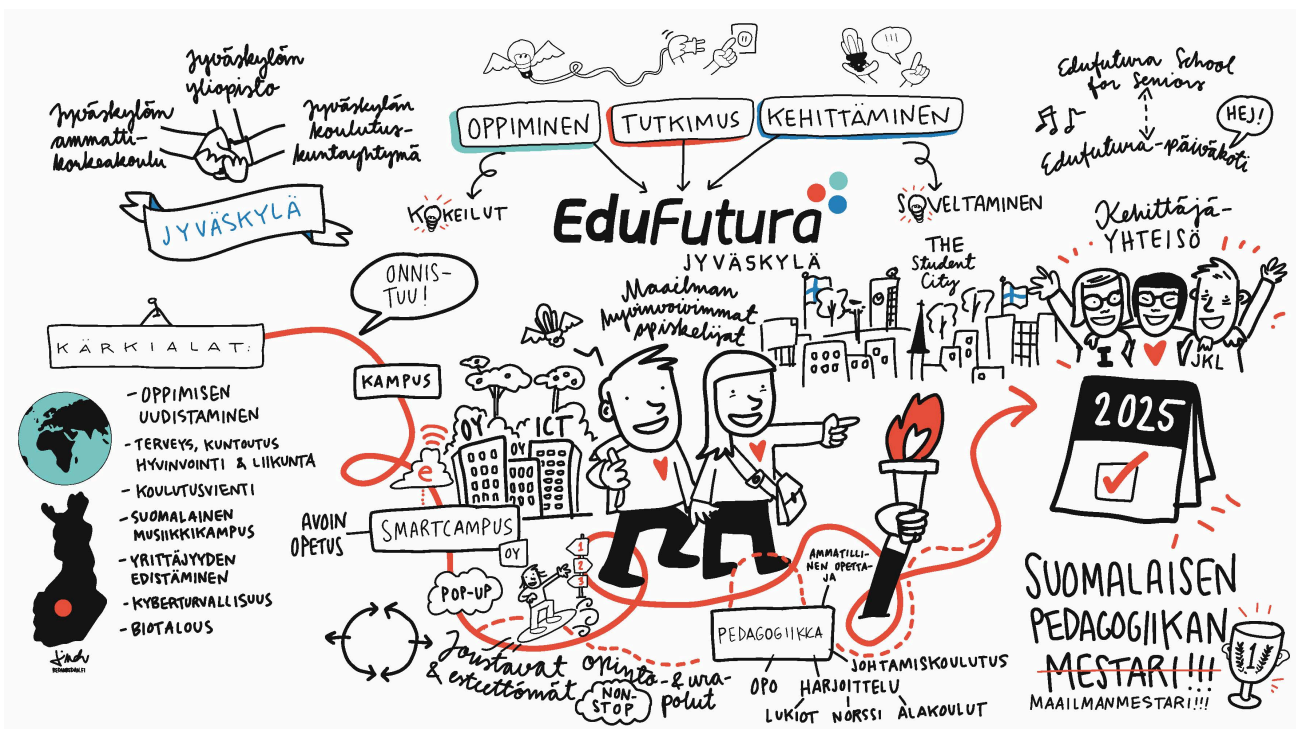 Jyväskylän
yliopisto
Jyväskylän
ammatti-
korkeakoulu
Jyväskylän
koulutus-
kuntayhtymä
JYVÄSKYLÄ
OPPIMINEN
TUTKIMUS
KEHITTÄMINEN
KOKEILUT
SOVELTAMINEN
EduFutura
JYVÄSKYLÄ
Edufutura School
for Seniors
HEJ!
Edufutura-päiväkoti
Kehittäjä-
YHTEISÖ
I
JKL
THE
Student
City
Maailman
hyvinvoivimmat
opiskelijat
ONNIS-
TUU!
KÄRKIALAT:
- OPPIMISEN
UUDISTAMINEN
- TERVEYS, KUNTOUTUS
HYVINVOINTI & LIIKUNTA
- KOULUTUSVIENTI
- SUOMALAINEN
MUSIIKKIKAMPUS
- YRITTÄJYYDEN
EDISTÄMINEN
- KYBERTURVALLISUUS
- BIOTALOUS
KAMPUS
OY
OY
ICT
e
AVOIN
OPETUS
SMARTCAMPUS
OY
1
2
3
POP-UP
Joustavat opinto- & ura-
& esteettömät polut
NON-
STOP
AMMATILLI-
NEN OPETTA-
JA
PEDAGOGIIKKA
JOHTAMISKOULUTUS
OPO
HARJOITTELU
LUKIOT NORSSI ALAKOULUT
2025
SUOMALAISEN
PEDAGOGIIKAN
MESTARI!!!
MAAILMANMESTARI!!!
1